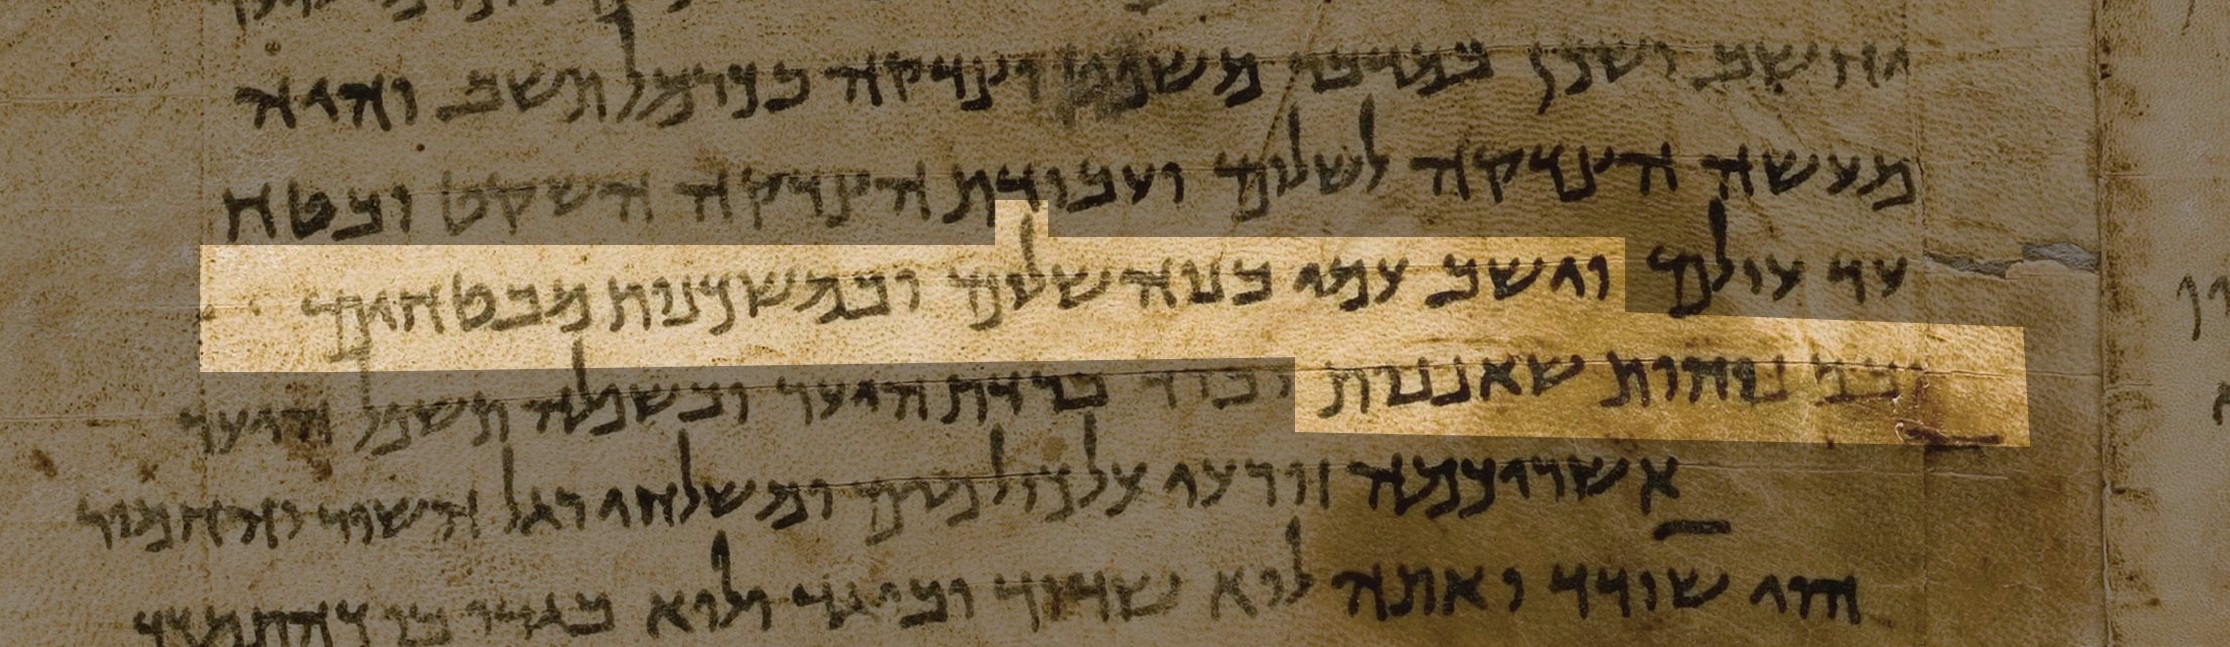 יחשב ושכן במדבר משפט וצדקה בכרמל תשב והיה
מעשה הצדקה לשלום ועבודת הצדקה השקט ובטח
עד עולם וישב עמי בנוה שלום ובמשכנות מבטחים
ובמנוחות שאננות וברד ברדת היער ובשפלה תשפל היער
אשריכמה זורעי על כול מים ומשלחי רגל השור והחמור
הוי שודד ואתה לוא שדוד ובוגד ולוא בגדו בו כהתמך